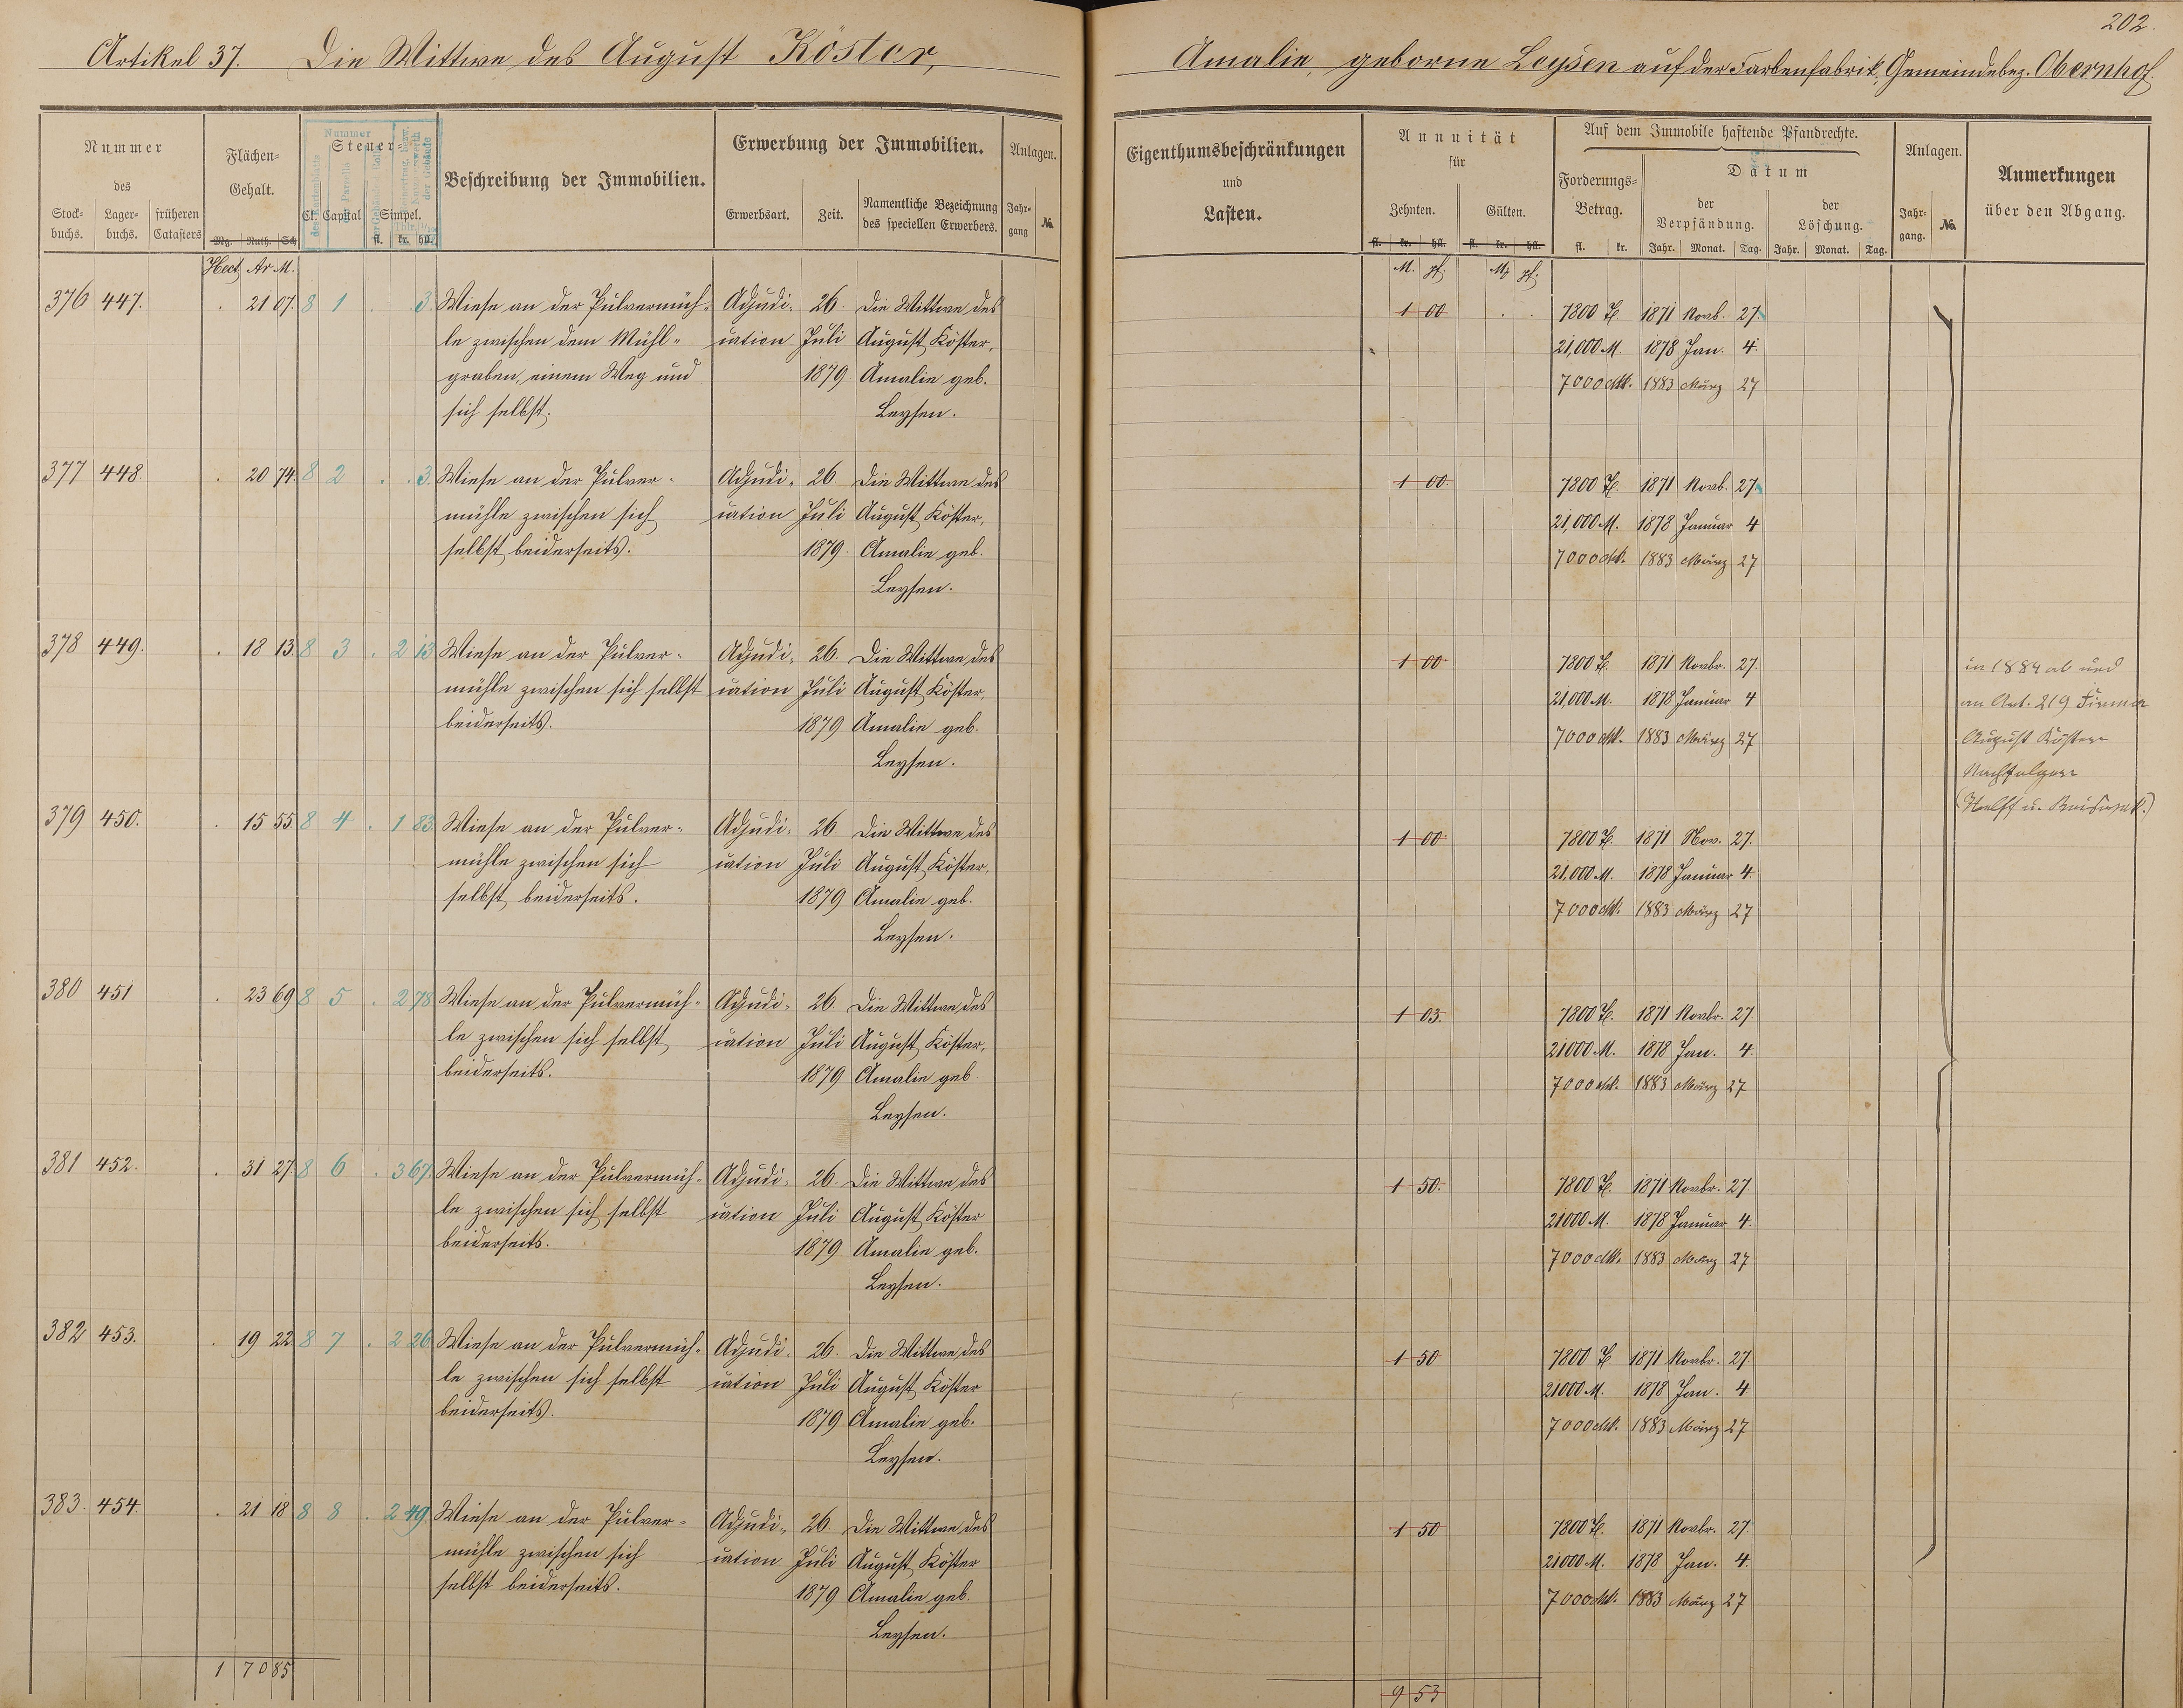 202.
Artikel 37. Die Wittwe des August Köster, Amalie, geborne Leysen auf der Farbenfabrik, Gemeindebez. Obernhof.
Nummer
des
Stock-
buchs.
Lager-
buchs.
früheren
Catasters
Flächen-
Gehalt.
Mg. Ruth. Sch.
Hect. Ar M.
Steuer
Cl. Capital Simpel.
fl. kr. hll.
Nummer
der Parzelle
der Gebäude
Beschreibung der Immobilien.
Erwerbung der Immobilien.
Erwerbsart.
Zeit.
Namentliche Bezeichnung
des speciellen Erwerbers.
Anlagen.
Jahr-
gang
No.
Eigenthumsbeschränkungen
und
Lasten.
Annuität
für
Zehnten.
Gülten.
fl. kr. hll. fl. kr. hll.
M. pf. M. pf.
Auf dem Immobile haftende Pfandrechte.
Forderungs-
Betrag.
fl. kr.
Datum
der
Verpfändung.
Jahr. Monat. Tag.
der
Löschung.
Jahr. Monat. Tag.
Anlagen.
Jahr-
gang.
No.
Anmerkungen
über den Abgang.
376 447. . 21 07. 8 1 . . 3. Wiese an der Pulvermüh- Adjudi- 26. Die Wittwe des 1 00 . . 7800 1871 Novb. 27.
le zwischen dem Mühl- cation Juli August Köster, 21,000 M. 1878 Jan. 4.
graben, einem Weg und 1879. Amalie geb. 7000 Mk. 1883 März 27
sich selbst. Leysen.
377 448. . 20 74. 8 2 . . 3. Wiese an der Pulver- Adjudi- 26 Die Wittwe des 1 00. 7800 1871 Novb. 27.
mühle zwischen sich cation Juli August Köster, 21,000 M. 1878 Januar 4
selbst beiderseits. 1879. Amalie geb. 7000 Mk. 1883 März 27
Leysen.
378 449. . 18 13. 8 3 . 2 13 Wiese an der Pulver- Adjudi- 26. Die Wittwe des 1 00 7800 1871 Novbr. 27.
mühle zwischen sich selbst cation Juli August Köster, 21,000 M. 1878 Januar 4
beiderseits. 1879 Amalie geb. 7000 Mk. 1883 März 27
Leysen.
in 1884 ab und
an Art. 219 Firma
August Köster
Nachfolger
379 450. . 15 55. 8 4 . 1 83. Wiese an der Pulver- Adjudi- 26 Die Wittwe des 1 00 7800 1871 Nov. 27.
mühle zwischen sich cation Juli August Köster, 21,000 M. 1878 Januar 4.
selbst beiderseits. 1879 Amalie geb. 7000 Mk. 1883 März 27
Leysen.
380 451 . 23 69 8 5 . 2 78 Wiese an der Pulvermüh- Adjudi- 26 Die Wittwe des 1 03. 7800 1871 Novbr. 27.
le zwischen sich selbst cation Juli August Köster, 21000 M. 1878 Jan. 4.
beiderseits. 1879 Amalie geb. 7000 Mk. 1883 März 27
Leysen.
381 452. . 31 27. 8 6 . 3 67. Wiese an der Pulvermüh- Adjudi- 26. Die Wittwe des 1 50. 7800 1871 Novbr. 27
le zwischen sich selbst cation Juli August Köster 21000 M. 1878 Januar 4.
beiderseits. 1879 Amalie geb. 7000 Mk. 1883 März 27
Leysen.
382 453. . 19 22 8 7 . 2 26. Wiese an der Pulvermüh- Adjudi- 26. Die Wittwe des 1 50 7800 1871 Novbr. 27.
le zwischen sich selbst cation Juli August Köster 21000 M. 1878 Jan. 4
beiderseits. 1879 Amalie geb. 7000 Mk. 1883 März 27
Leysen.
383. 454 . 21 18 8 8 . 2 49. Wiese an der Pulver- Adjudi- 26. Die Wittwe des 1 50 7800 1871 Novbr. 27.
mühle zwischen sich cation Juli August Köster 21000 M. 1878 Jan. 4.
selbst beiderseits. 1879 Amalie geb. 7000 Mk. 1883 März 27
Leysen.
1 70 85 9 53